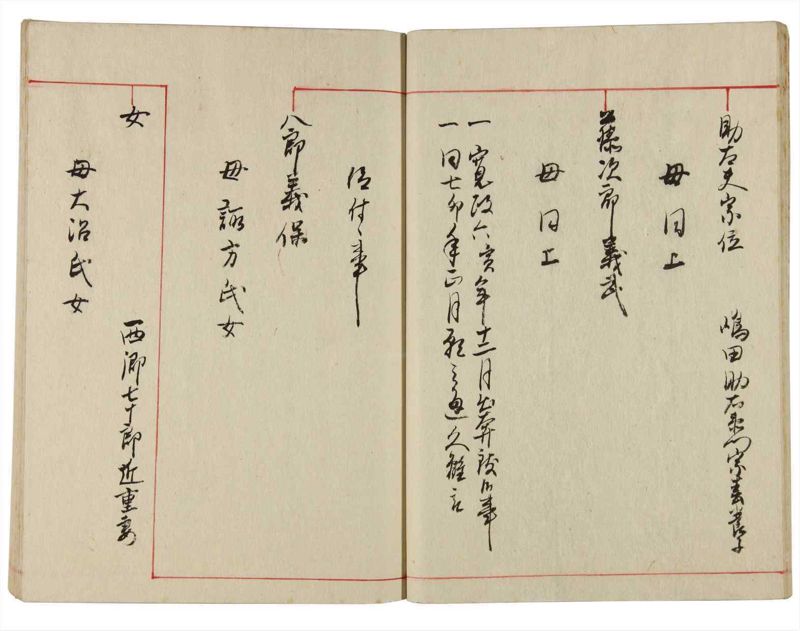 助右夫宗位
嶋田助右衛門宗春養子
母同上
藤次郎義武
母同上
一寛政六寅年十二月出奔被成事
一同七卯年正月願之通久離
付事
八郎義保
母諏方氏女
女
西郷七十郎近重妻
母大沼氏女